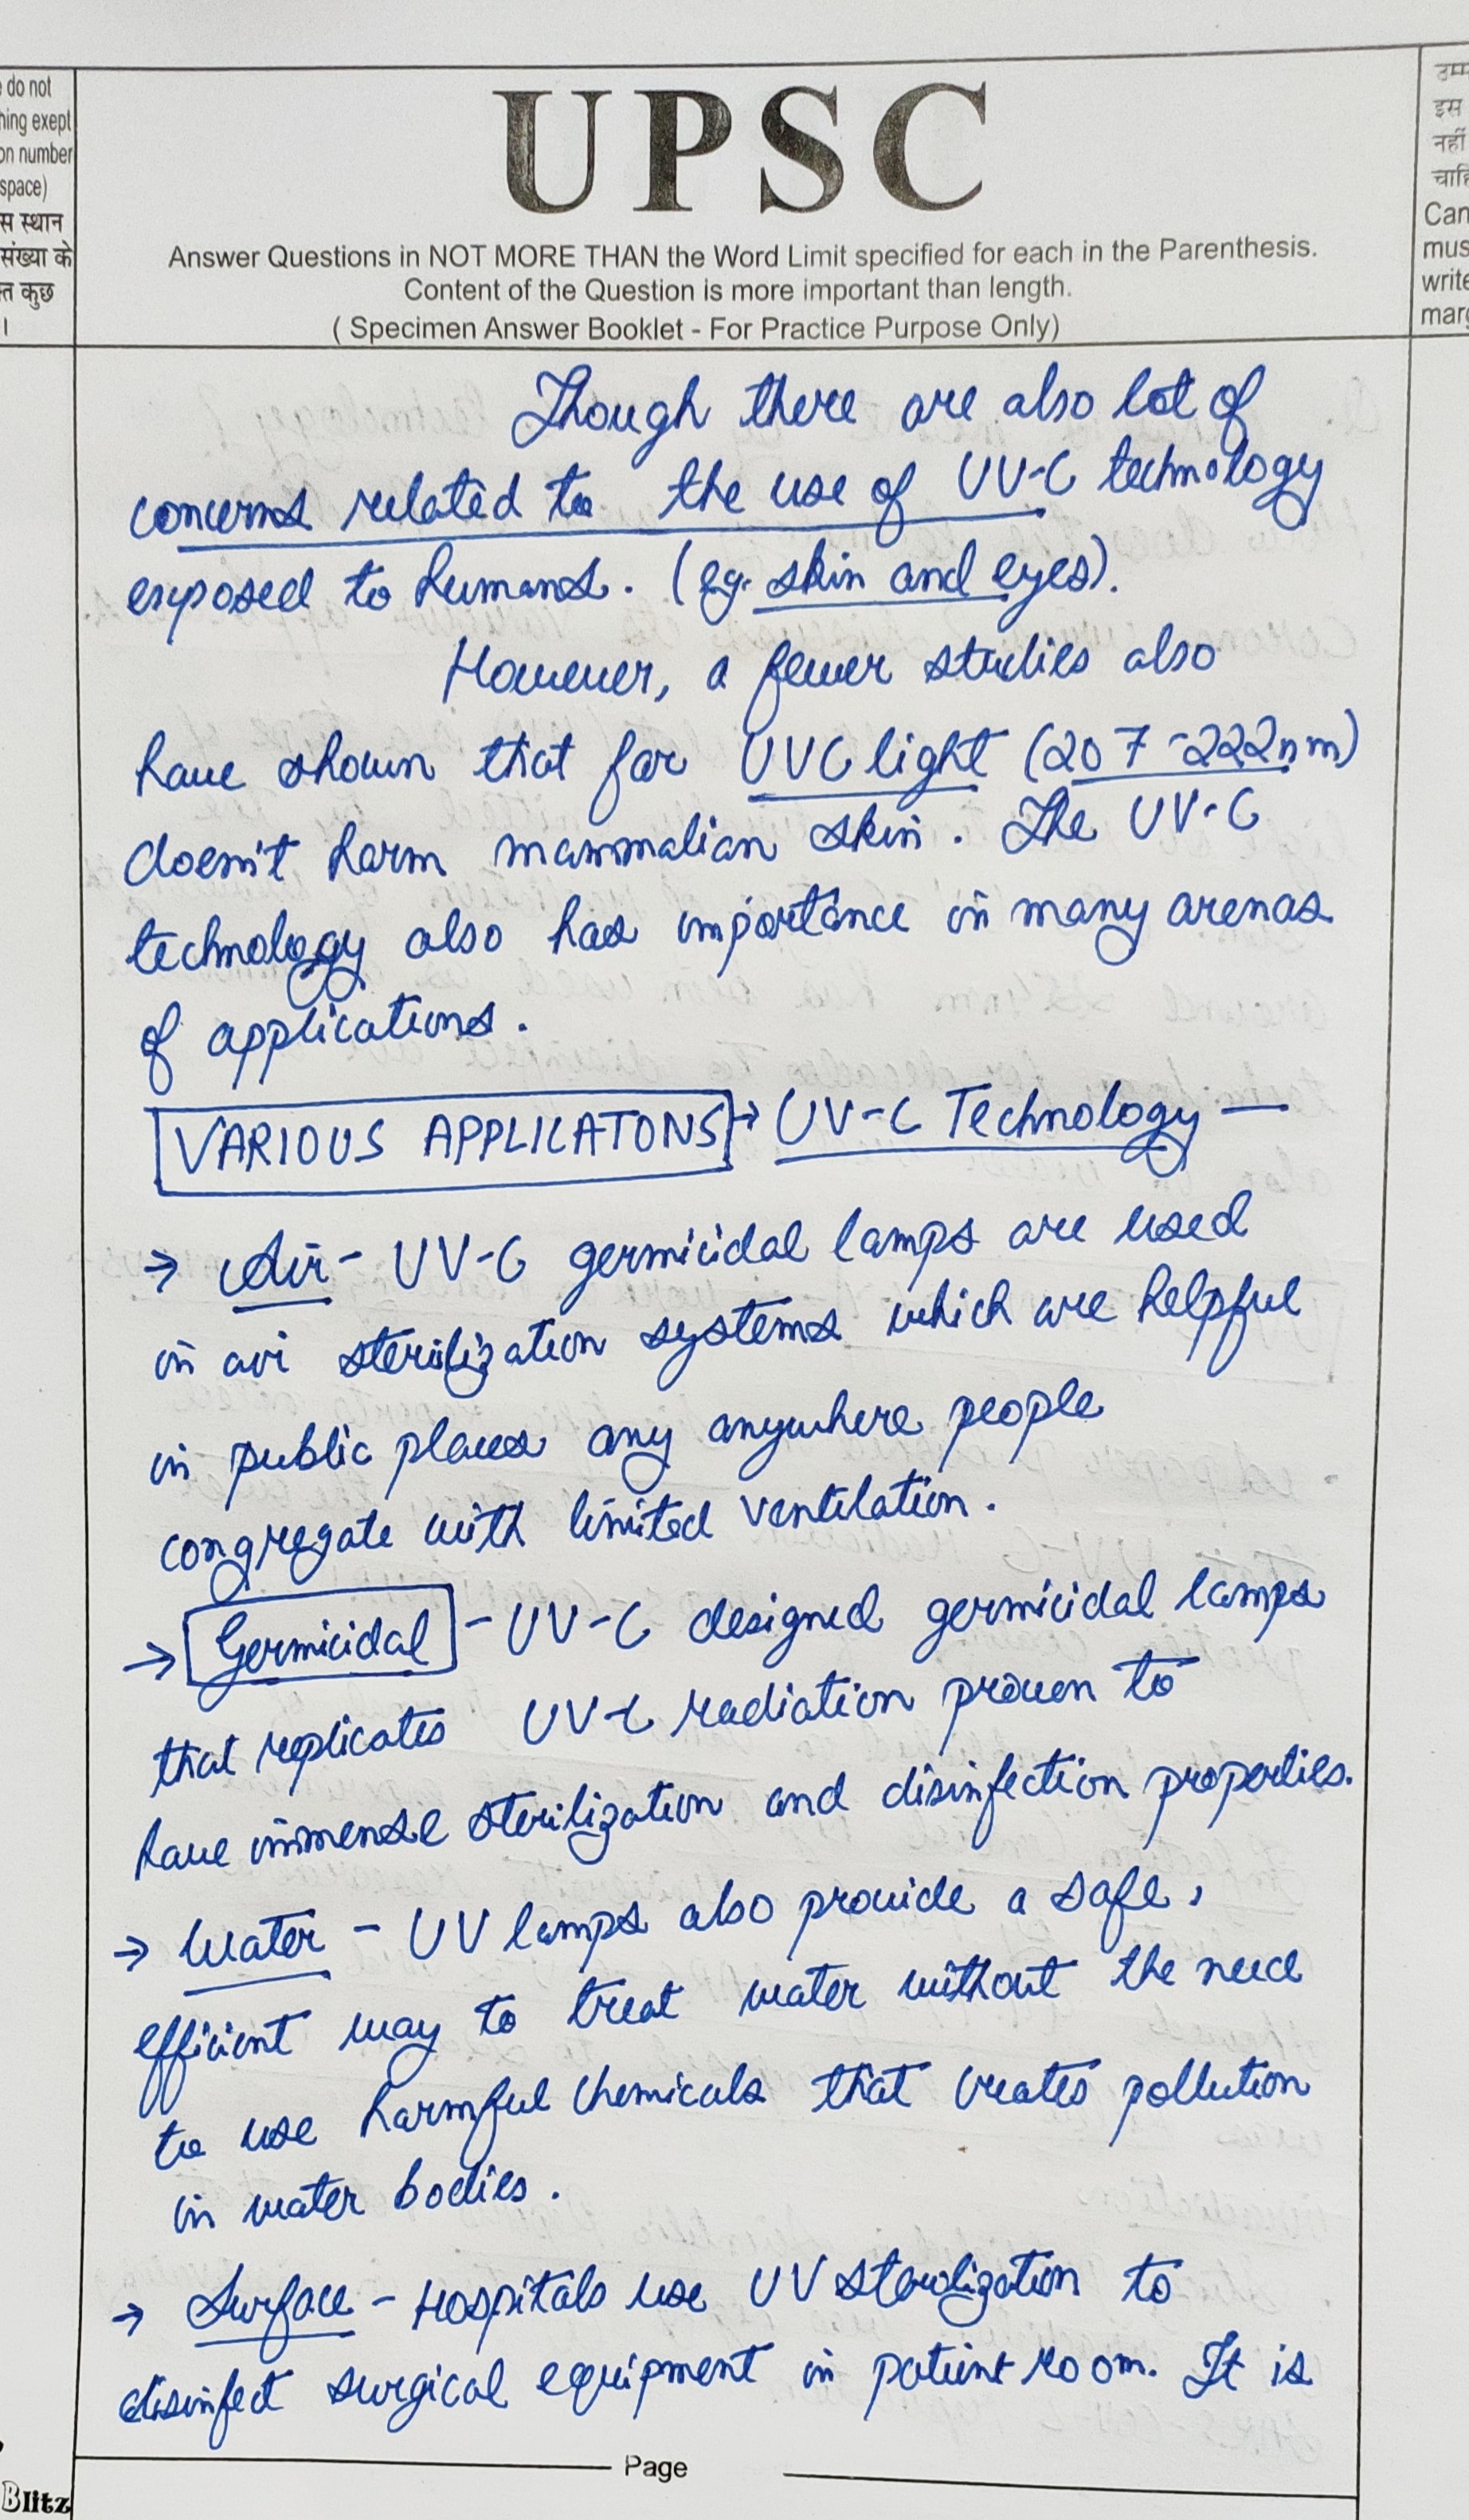 do not
hing exept
on number
space)
स स्थान
संख्या के
त कुछ
।
UPSC
Answer Questions in NOT MORE THAN the Word Limit specified for each in the Parenthesis.
Content of the Question is more important than length.
( Specimen Answer Booklet - For Practice Purpose Only)
उम्म
इस
नहीं
चाहि
Can
mus
write
marg
Though there are also lot of
concerns related to the use of UV-C technology
exposed to humans. (eg. skin and eyes).
However, a fewer studies also
have shown that far UVC light (207-222nm)
doesn't harm mammalian skin. The UV-C
technology also has importance in many arenas
of applications.
VARIOUS APPLICATONS → UV-C Technology —
→ Air - UV-C germicidal lamps are used
in air sterilization systems which are helpful
in public places any anywhere people
congregate with limited ventilation.
→ Germicidal - UV-C designed germicidal lamps
that replicates UV-C radiation proven to
have immense sterilization and disinfection properties.
→ Water - UV lamps also provide a safe,
efficient way to treat water without the need
to use harmful chemicals that creates pollution
in water bodies.
→ Surface - Hospitals use UV sterilization to
disinfect surgical equipment in patient room. It is
Page
Blitz